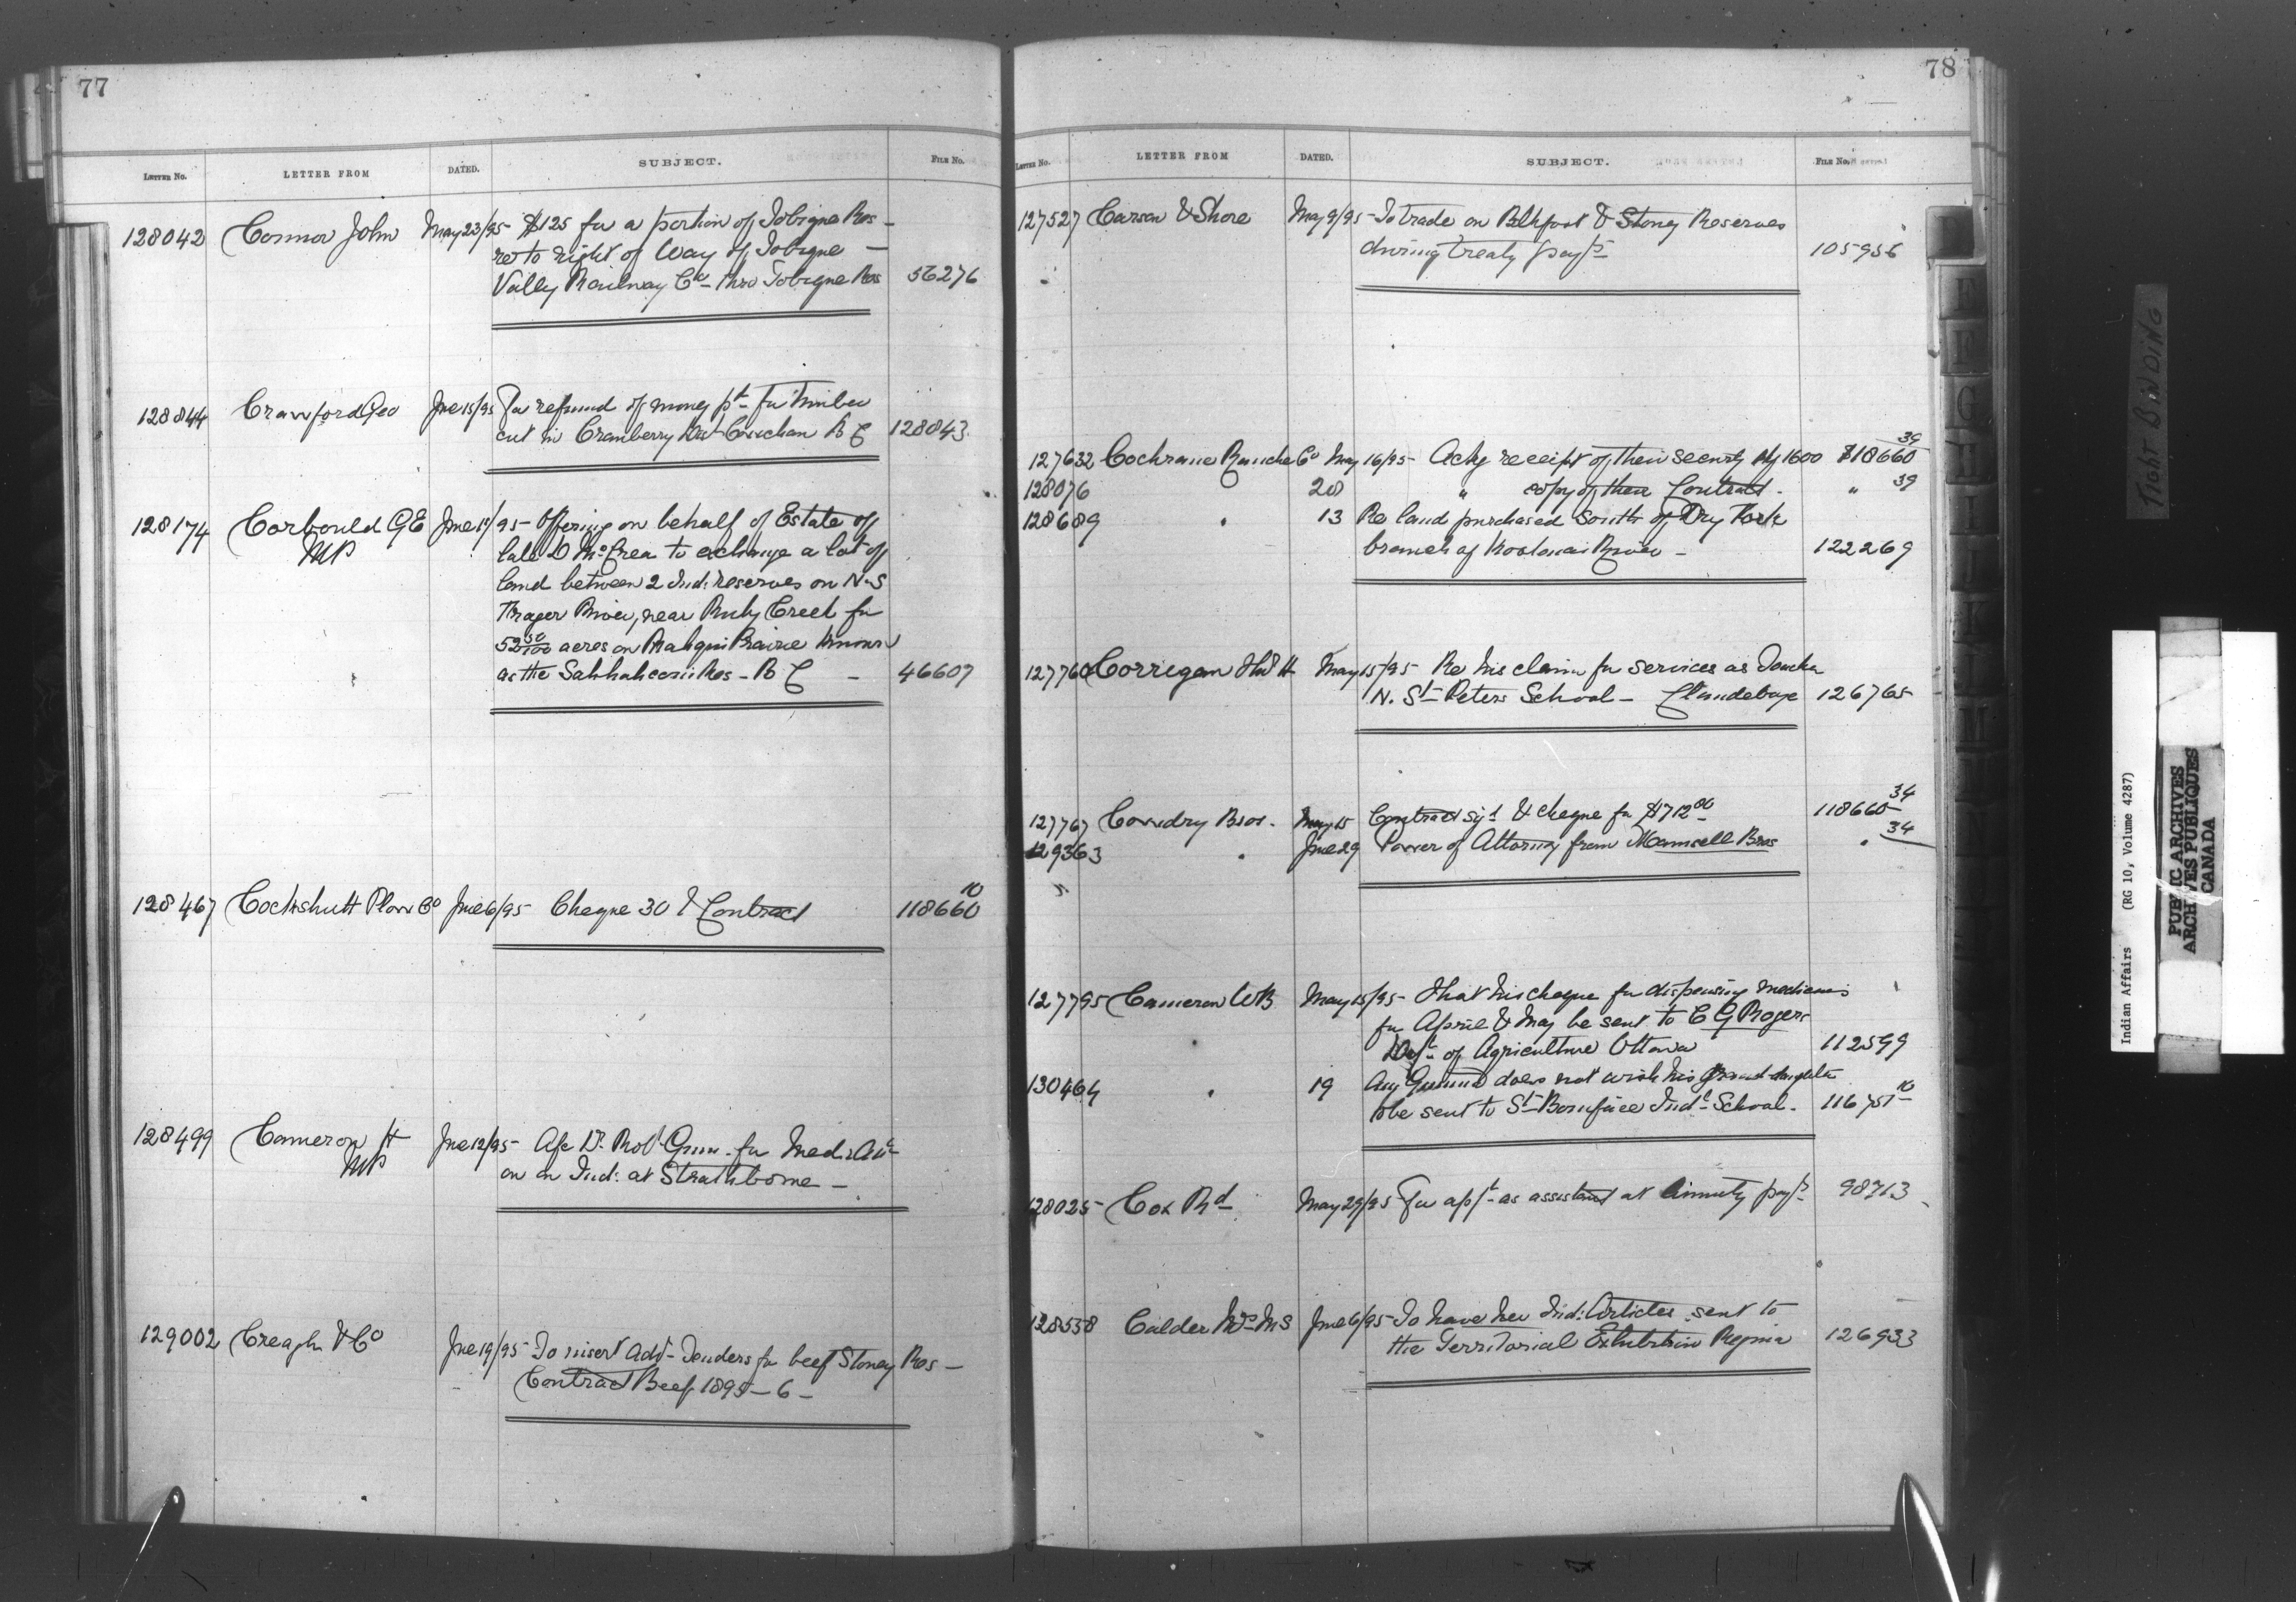 77
LETTER No.
LETTER FROM
DATED.
SUBJECT.
FILE No.
128042 Connor John May 23/95 $125 for a portion of Tobique Res -
re to right of Way of Tobique -
Vally Railway Co thro Tobique Res 56276
128844 Crawford Geo Jne 15/95 For refund of money pd for Timber
cut in Cranberry Dist Cowichan B C 128843
128174 Corbould G E Jne 1/95 - Offering on behalf of Estate of
MP late D McCrea to exchange a lot of
land between 2 Ind: reserves on N.S
Frazer River, near Ruby Creek for
52 50/100 acres on Prairie known
as the Res - B C - 46607
128467 Cockshutt Plow Co Jne 6/95 Cheque 30 & Contract 118660 10
128499 Cameron H Jne 12/95 - Dr. Robt Gunn for Med: Attce
MP on an Ind: at Strathborne -
129002 Creagh & Co Jne 19/95 To insert Advt - Tenders for beef Stoney Res -
Contract Beef 1895 - 6 -
78
LETTER No.
LETTER FROM
DATED.
SUBJECT.
FILE No.
127527 Carson & Shore May 9/95 - To trade on Blkfoot & Stoney Reserves
during treaty payts 105936
127632 Cochrane Ranche Co May 16/95 - Ackg receipt of their security 1600 118660 39
128076 28 " copy of their Contract - " 39
128689 " 13 Re land purchased South of Dry Fork
branch of Kootenai River - 122269
127760 Corrigan H May 15/95 Re his claim for services as Teacher
N. St Peters School - Clandeboye 126765
127767 Cowdry Bros. May 15 Contract sigd & cheque for $712 00 118660 34
129363 " Jne 29 Power of Attorney from Maunsell Bros " 34
127795 Cameron W B May 15/95 - That his cheque for dispensing medicines
for April & May be sent to C G Rogers
Dept of Agriculture Ottawa 112599
130464 " 19 does not wish his Grand-daughter
to be sent to St Boniface Indl School - 116751 10
128025 Cox Rd May 29/95 For appt - as assistant at Annuity payts 98713
128538 Calder Mrs M S Jne 6/95 - To have her Ind: Articles sent to
the Territorial Exhibition Regina 126933
E
F
G
H
I
K
M
TIGHT BINDING
Indian Affairs (RG 10, Volume 4287)
PUBLIC ARCHIVES
ARCHIVES PUBLIQUES
CANADA